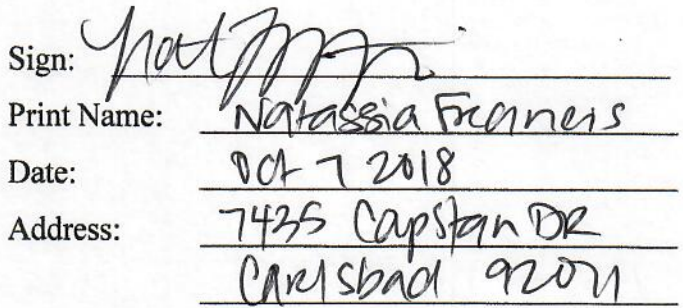 Sign:
Print Name: Natassia Francis
Date: Oct 7 2018
Address: 7435 Capstan DR
Carlsbad 92011